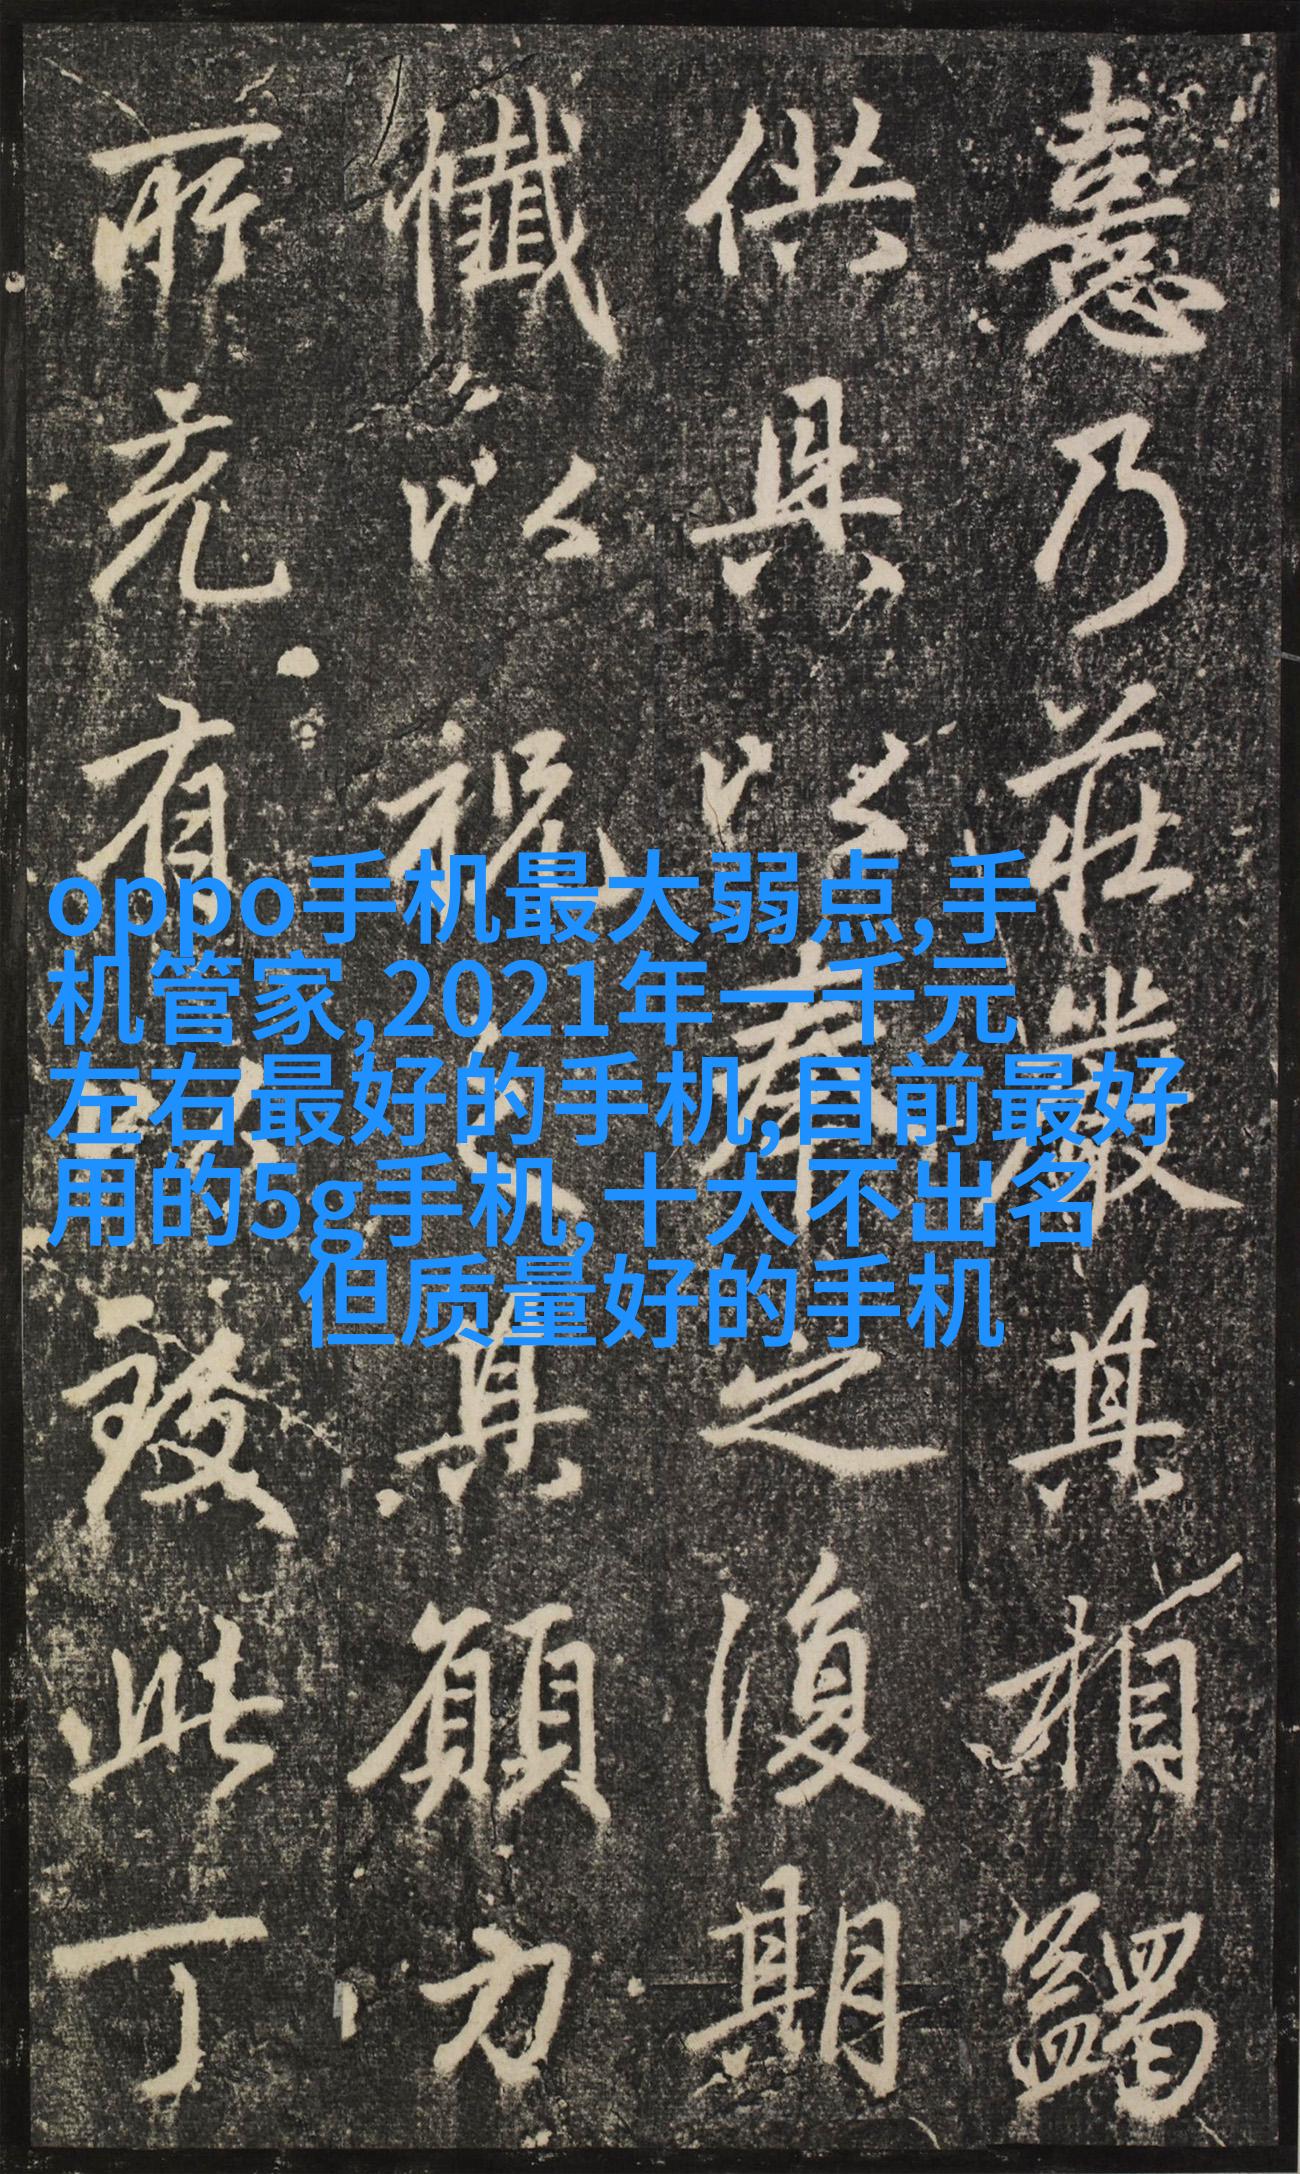 oppo手机最大弱点,手
机管家,2021年一千元
左右最好的手机,目前最好
用的5g手机,十大不出名
但质量好的手机
憙乃莊嚴其相蠲
供具以奉之復期
懺以祝之其願力
所充有以致此丁